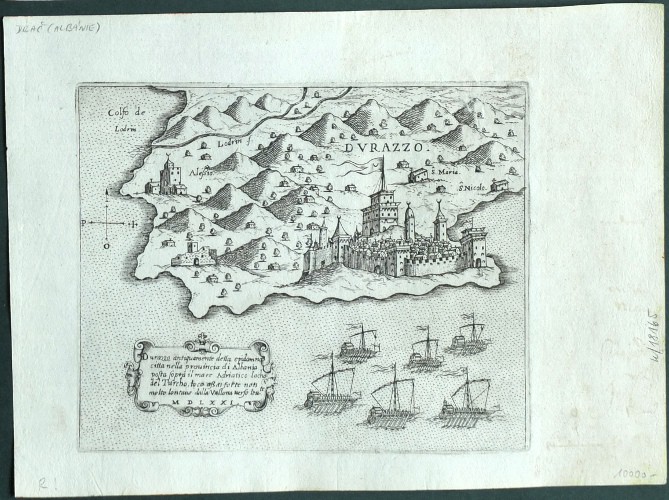 DRAČ (ALBÁNIE)
Colfo de
Lodrin
Lodrin f.
DVRAZZO.
Alessio
S. Maria
S. Nicolo
P
O
Durazzo antiquamente detta epidamno
citta nella provincia di Albania
posta sopra il mare Adriatico loco
del Turcho, loco assai forte non
molto lontano dalla Vallona verso
M D L X X I
10000-
R!